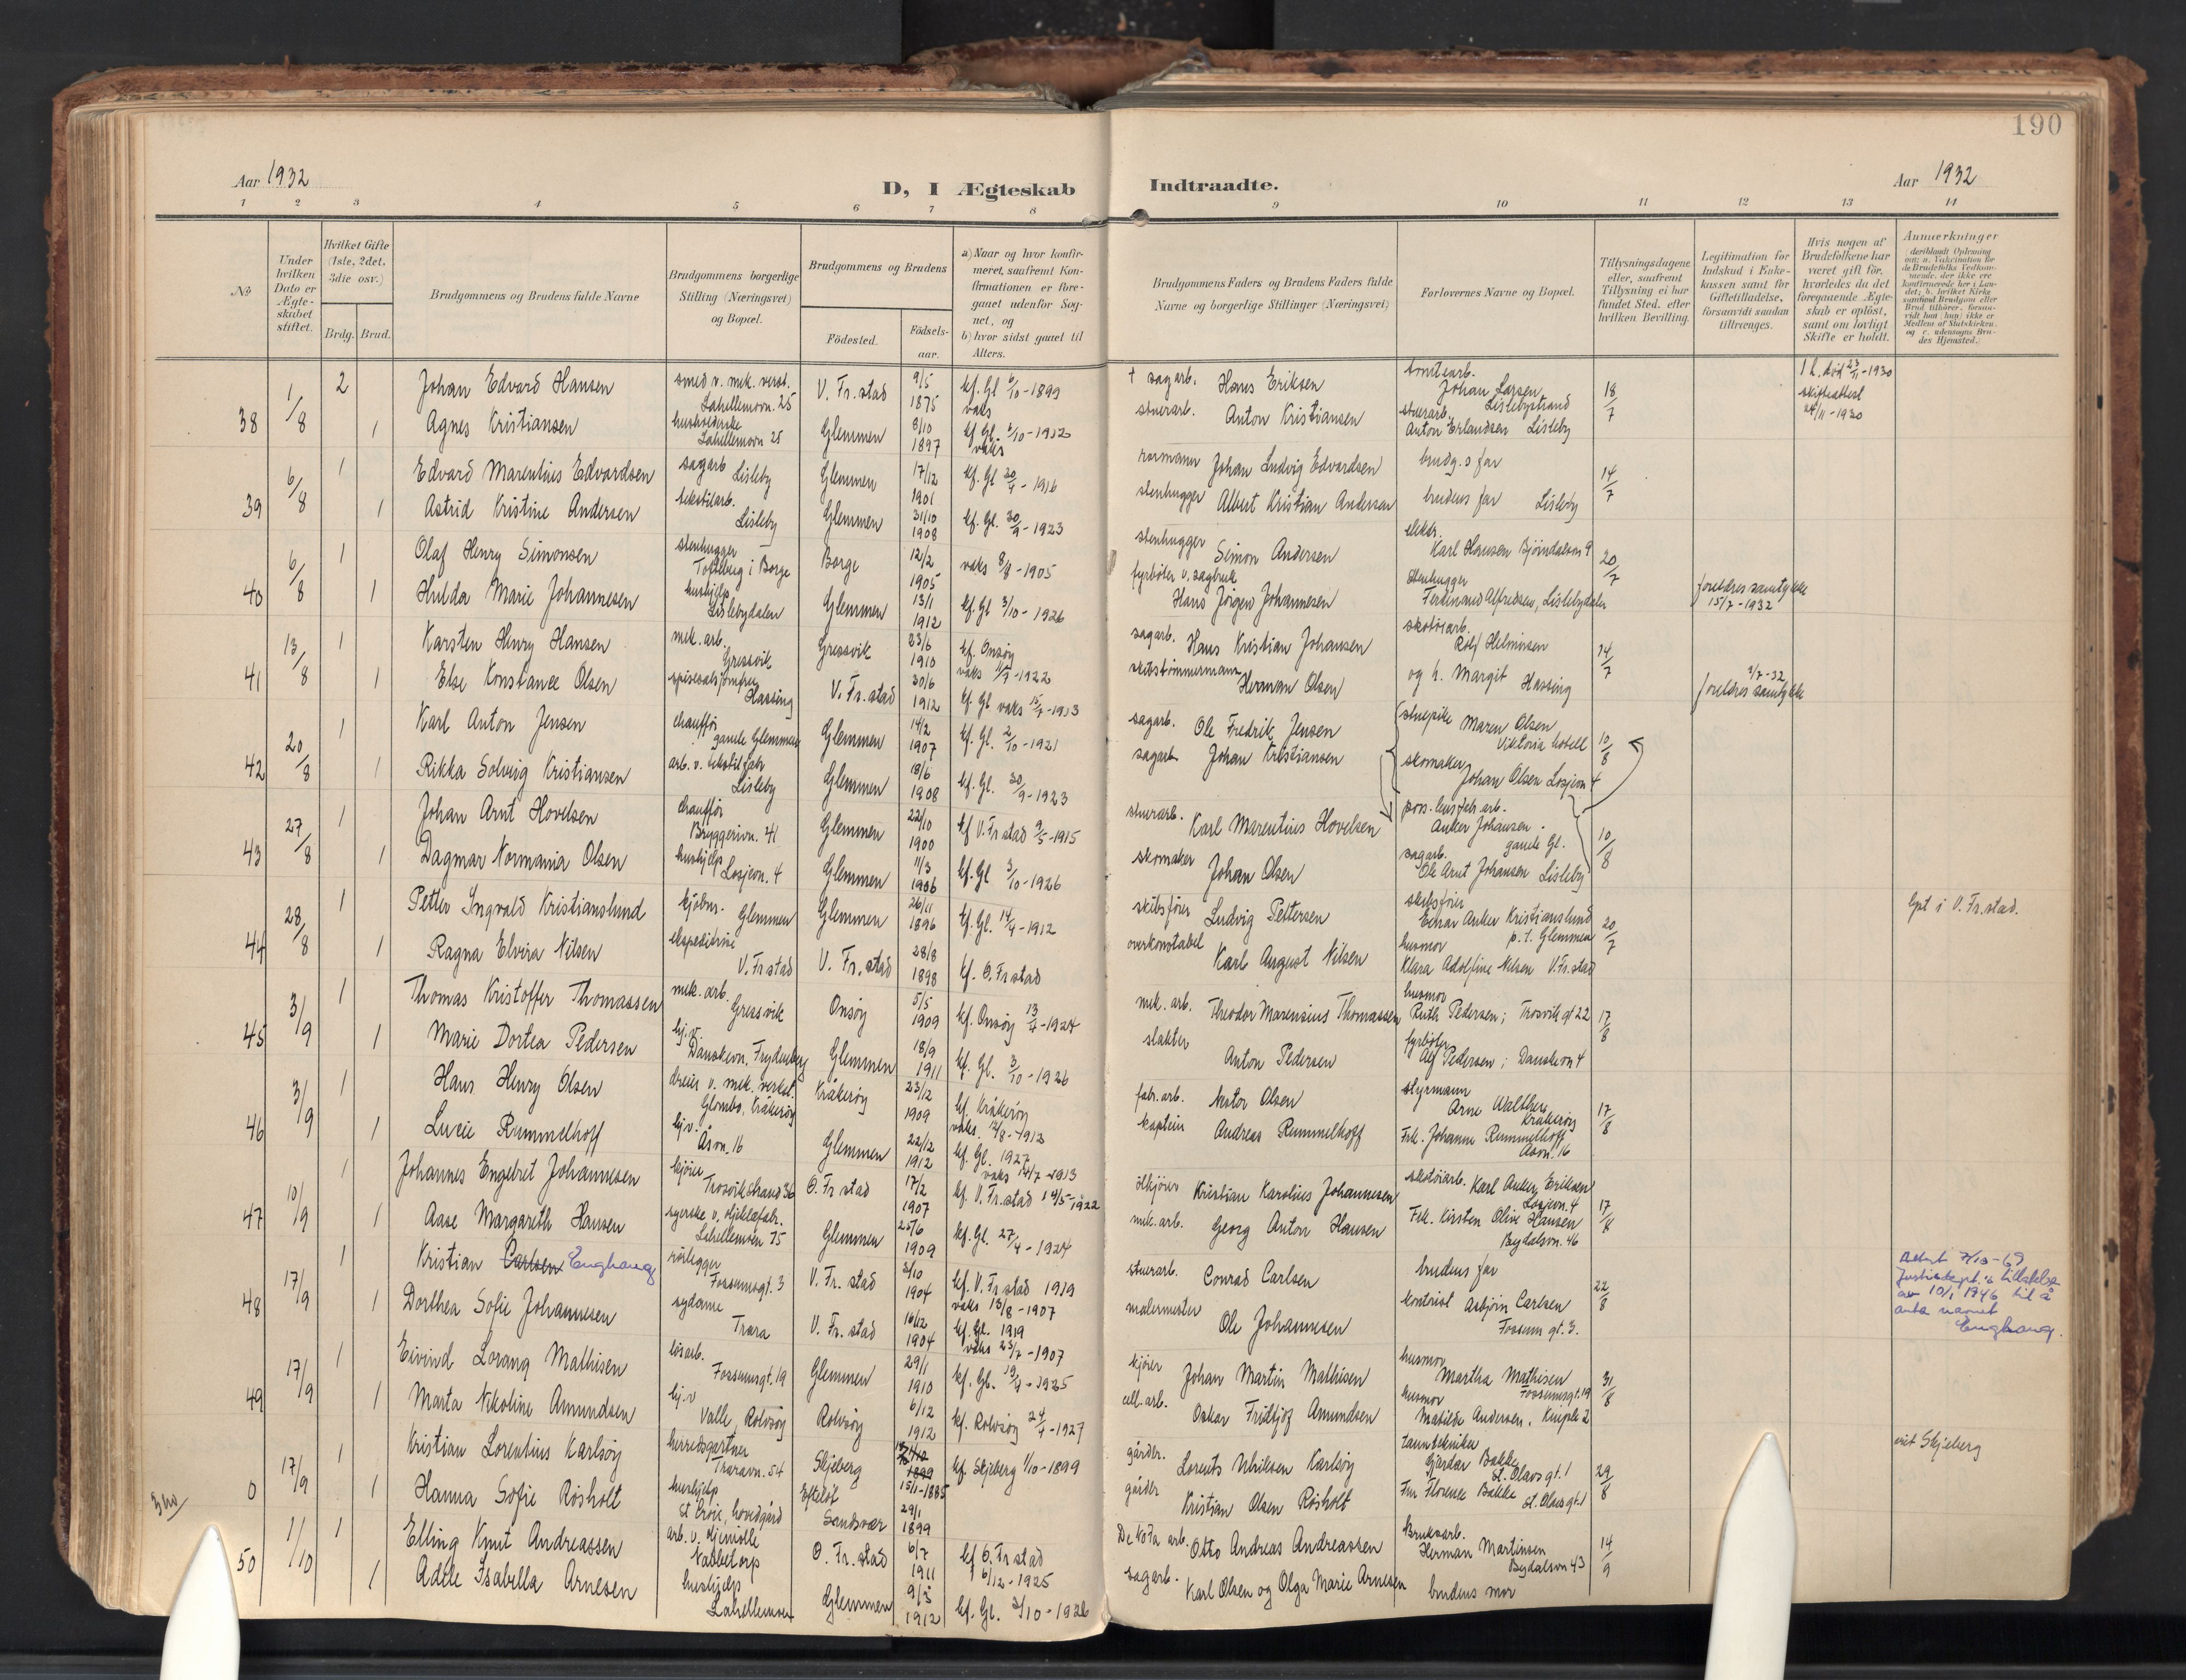 190
Aar 1932
D, I Ægteskab Indtraadte.
Aar 1932
1 2 3 4 5 6 7 8 9 10 11 12 13 14
No
Under hvilken Dato er Ægteskabet stiftet.
Hvilket Gifte (1ste, 2det, 3die osv.)
Brdg. Brud.
Brudgommens og Brudens fulde Navne
Brudgommens borgerlige Stilling (Næringsvei) og Bopæl.
Brudgommens og Brudens
Fødested.
Fødselsaar.
a) Naar og hvor konfirmeret, saafremt Konfirmationen er foregaaet udenfor Sognet, og
b) hvor sidst gaaet til Alters.
Brudgommens Faders og Brudens Faders fulde Navne og borgerlige Stillinger (Næringsvei)
Forlovernes Navne og Bopæl.
Tillysningsdagene eller, saafremt Tillysning ei har fundet Sted, efter hvilken Bevilling.
Legitimation for Indskud i Enkekassen samt for Giftetilladelse, forsaavidt saadan tiltrænges.
Hvis nogen af Brudefolkene har været gift før, hvorledes da det foregaaende Ægteskab er opløst, samt om lovligt Skifte er holdt.
Anmerkninger
38 1/8 2 Johan Edvard Hansen smed v. mek. verst. Lahellemovn. 25 V. Fr.stad 9/5 1875 kf. Gl 6/10-1899 vaks + sagarb. Hans Eriksen tomtearb. Johan Larsen Lislebystrand 18/7 1 h. död 23/11-1930 skifteattest 24/11-1930
1 Agnes Kristiansen husholderske Lahellemovn 25 Glemmen 8/10 1897 kf Gl. 6/10-1912 vaks stuerarb. Anton Kristiansen stuerarb. Anton Erlandsen Lisleby
39 6/8 1 Edvard Marentius Edvardsen sagarb Lisleby Glemmen 17/12 1901 kf. Gl 30/4-1916 rormann Johan Ludvig Edvardsen brudg.s far 14/7
1 Astrid Kristine Andersen tekstilarb. Lisleby Glemmen 31/10 1908 kf. Gl. 30/9-1923 stenhugger Albert Kristian Andersen brudens far Lisleby
40 6/8 1 Olaf Henry Simonsen stenhugger Torsberg i Borge Borge 12/2 1905 vaks 8/8-1905 stenhugger Simon Andersen elektr. Karl Hansen Bjørndalsvn 9 20/7
1 Hulda Marie Johannesen hushjelp Lislebydalen Glemmen 13/1 1912 kf. Gl 3/10-1926 fyrbøter v. sagbruk Hans Jørgen Johannesen stenhugger Ferdinand Alfredsen, Lislebydalen foreldres samtykke 15/7-1932
41 13/8 1 Karsten Henry Hansen mek. arb. Gressvik Gressvik 23/6 1910 kf. Onsøy vaks 11/7-1922 sagarb. Hans Kristian Johansen skotøiarb. Rolf Helmersen 14/7
1 Else Konstance Olsen spisesalsjomfru Hassing V. Fr.stad 30/6 1912 kf. Gl vaks 15/7-1913 skibstømmermann Herman Olsen og h. Margit Hassing 2/7-32 foreldres samtykke
42 20/8 1 Karl Anton Jensen chauffør gamle Glemmen Glemmen 14/2 1907 kf. Gl. 2/10-1921 sagarb. Ole Fredrik Jensen stuepike Maren Olsen Viktoria hotell 10/8
1 Rikka Solveig Kristiansen arb. v. tekstilfabr Lisleby Glemmen 18/6 1908 kf. Gl. 30/9-1923 sagarb Johan Kristiansen skomaker Johan Olsen Losjevn 4
43 27/8 1 Johan Arnt Hovelsen chauffør Bryggerivn. 41 Glemmen 22/10 1900 kf V. Fr stad 9/5-1915 stuerarb. Karl Marentius Hovelsen Anker Johansen gamle Gl. 10/8
1 Dagmar Normania Olsen hushjelp Losjevn. 4 Glemmen 11/3 1906 kf. Gl 3/10-1926 skomaker Johan Olsen sagarb. Ole Arnt Johansen Lisleby
44 28/8 1 Petter Ingvald Kristianslund kjøbm. Glemmen Glemmen 26/11 1896 kf. Gl. 14/4-1912 skibsfører Ludvig Pettersen skibsfører Einar Anker Kristianslund p.t. Glemmen 20/7 lyst i V. Fr.stad.
1 Ragna Elvira Nilsen ekspeditrise V. Fr stad V. Fr. stad 28/8 1898 kf. Ø. Fr stad overkonstabel Karl August Nilsen husmor Klara Adolfine Nilsen V. Fr. stad
45 3/9 1 Thomas Kristoffer Thomassen mek. arb. Gressvik Onsøy 5/5 1909 kf. Onsøy 13/4-1924 mek. arb. Theodor Marensius Thomassen husmor Ruth Pedersen; Trosvik gt 22 17/8
1 Marie Dortea Pedersen hj.v. Danskevn. Frydenberg Glemmen 18/9 1911 kf. Gl. 3/10-1926 slakter Anton Pedersen fyrbøter Alf Pedersen; Danskevn 4
46 3/9 1 Hans Henry Olsen dreier v. mek. verkst. Glombo, Kråkerøy Kråkerøy 23/12 1909 kf. Kråkerøy vaks. 2/8-1913 fabr. arb. Nestor Olsen styrmann Arne Walther Kråkerøy 17/8
1 Lucie Rummelhoff hj.v. Åsvn. 16 Glemmen 22/12 1912 kf. Gl. 1927 vaks 14/7-1913 kaptein Andreas Rummelhoff Frk. Johanne Rummelhoff Åsvn. 16
47 10/9 1 Johannes Engebret Johannesen kjører Trosvikstrand 36 Ø. Fr stad 17/2 1907 kf. V. Fr. stad 14/5-1922 ølkjører Kristian Karolius Johannesen skotøiarb. Karl Anker Eriksen Losjevn. 4 17/8
1 Aase Margareth Hansen syerske v. oljeklæfabr. Lahellemovn 75 Glemmen 25/6 1909 kf. Gl. 27/4-1924 mek. arb. Georg Anton Hansen Frk. Kirsten Olive Hansen Bydalsvn. 46
48 17/9 1 Kristian Carlsen Enghaug rørlegger Fossumsgt. 3 V. Fr. stad 3/10 1904 kf. V. Fr stad 1919 vaks 13/8-1907 stuerarb. Conrad Carlsen brudens far 22/8 Attest 7/10-69 Justisdept.s tillatelse av 10/1 1946 til å anta navnet Enghaug.
1 Dorthea Sofie Johannesen sydame Trara V. Fr. stad 16/12 1904 kf. Gl. 1919 vaks 23/7-1907 malermester Ole Johannesen kontorist Asbjørn Carlsen Fossum gt. 3.
49 17/9 1 Eivind Lorang Mathisen løsarb. Fossumsgt. 19 Glemmen 29/1 1910 kf. Gl. 19/4-1925 kjører Johan Martin Mathisen husmor Martha Mathisen Fossumsgt. 19 31/8
1 Marta Nikoline Amundsen hj.v Valle, Rolvsøy Rolvsøy 6/12 1912 kf. Rolvsøy 24/4-1927 cell. arb. Oskar Fridtjof Amundsen husmor Matilde Andersen, Kniple 2
0 17/9 1 Kristian Lorentius Karlsøy herredsgartner Traravn. 54 Skjeberg 1899 15/1-1885 kf. Skjeberg 1/10-1899 gårdbr. Lorents Ulriksen Karlsøy tanntekniker Gjerdar Bakke St. Olavs gt. 1 29/8 viet Skjeberg
1 Hanna Sofie Røsholt hushjelp hovedgård Efteløt Sandsvær 29/1 1899 gårdbr Kristian Olsen Røsholt Fru Florence Bakke St. Olavsgt. 1
50 1/10 1 Elling Knut Andreassen arb. v. oljemølle Nabbetorp Ø. Fr. stad 6/7 1911 kf Ø. Fr stad 6/12-1925 De No Fa arb. Otto Andreas Andreassen Bruksarb. Herman Martinsen Bydalsvn 43 14/9
1 Adele Isabella Arnesen hushjelp Lahellemoen Glemmen 9/5 1912 kf. Gl. 3/10-1926 sagarb. Karl Olsen og Olga Marie Arnesen brudens mor